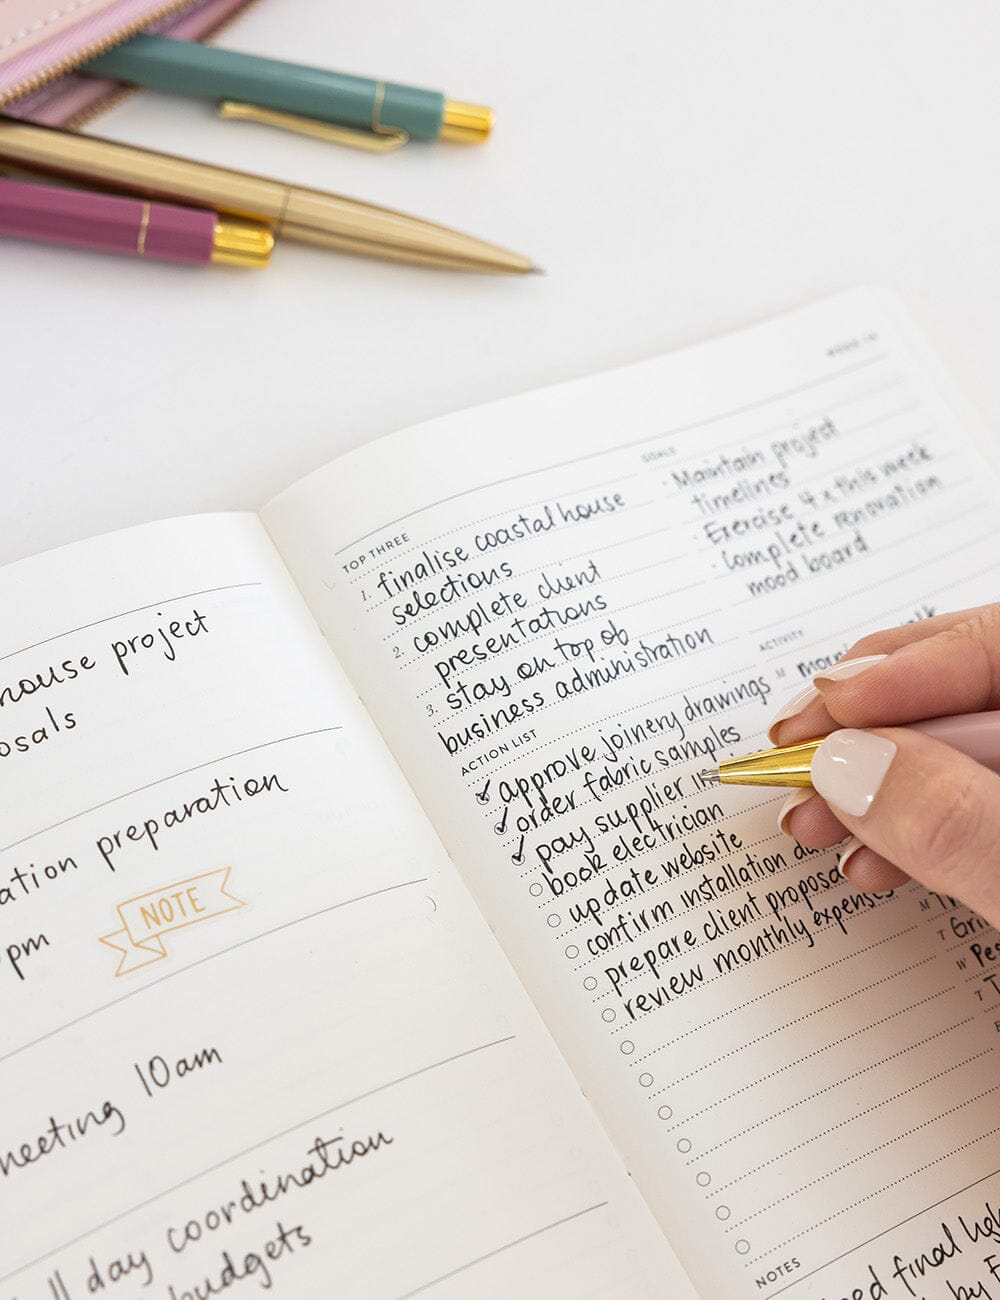 house project
ation preparation
pm
NOTE
meeting 10am
day coordination
budgets
TOP THREE
1. finalise coastal house
selections
2. complete client
presentations
3. stay on top of
business administration
GOALS
· Maintain project
timelines
· Exercise 4x this week
· Complete renovation
mood board
ACTION LIST
approve joinery drawings
order fabric samples
pay supplier
book electrician
update website
confirm installation
prepare client proposals
review monthly expenses
ACTIVITY
M
M
T
W
T
NOTES
final
by